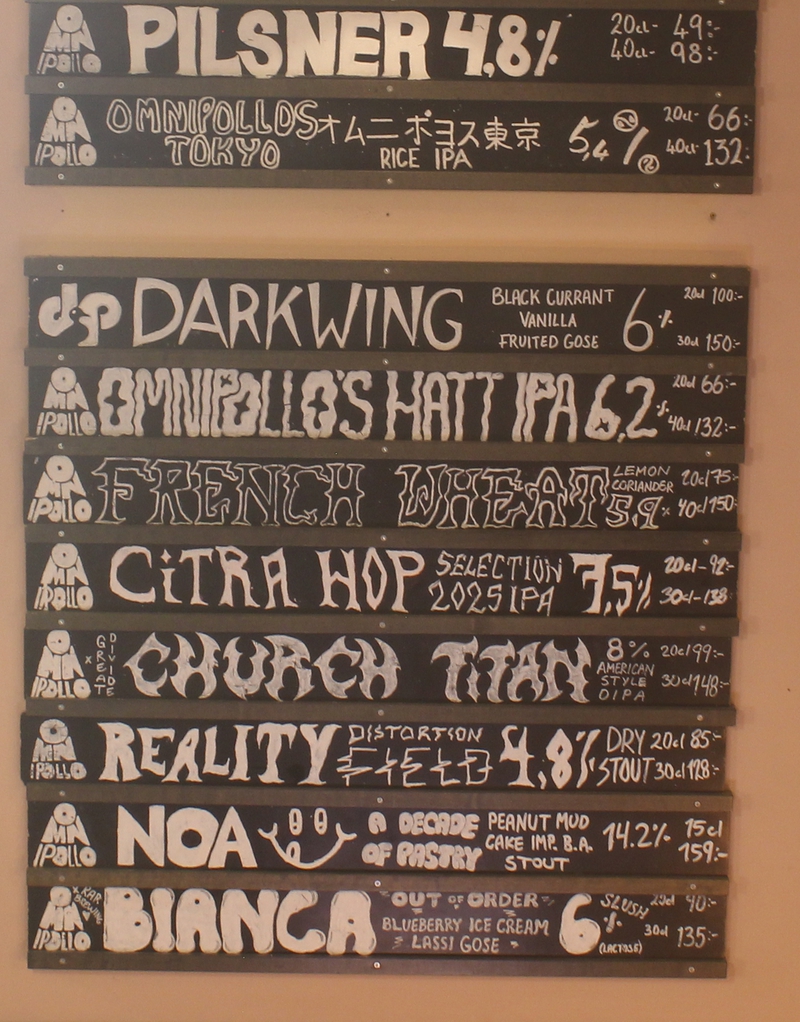 OMNIPOLLO PILSNER 4,8% 20cl- 49:-
40cl- 98:-
OMNIPOLLO OMNIPOLLOS オムニポヨス東京 5,4% 20cl- 66:-
TOKYO RICE IPA 40cl- 132:-
dp DARKWING BLACK CURRANT 6% 20cl 100:-
VANILLA
FRUITED GOSE 30cl 150:-
OMNIPOLLO OMNIPOLLO'S HATT IPA 6,2% 20cl 66:-
40cl 132:-
OMNIPOLLO FRENCH WHEAT LEMON 20cl 75:-
CORIANDER
5,9% 40cl 150:-
OMNIPOLLO CiTRA HOP SELECTION 7,5% 20cl- 92:-
2025 IPA 30cl- 138:-
OMNIPOLLO x GREAT DIVIDE CHURCH TiTAN 8% 20cl 99:-
AMERICAN
STYLE 30cl 148:-
DIPA
OMNIPOLLO REALITY DISTORTION 4,8% DRY 20cl 85:-
FIELD STOUT 30cl 128:-
OMNIPOLLO NOA A DECADE PEANUT MUD 14.2% 15cl
OF PASTRY CAKE IMP. B.A. 159:-
STOUT
OMNIPOLLO x KAR BREWING BIANCA OUT OF ORDER 6% SLUSH 20cl 90:-
BLUEBERRY ICE CREAM 30cl 135:-
LASSI GOSE (LACTOSE)